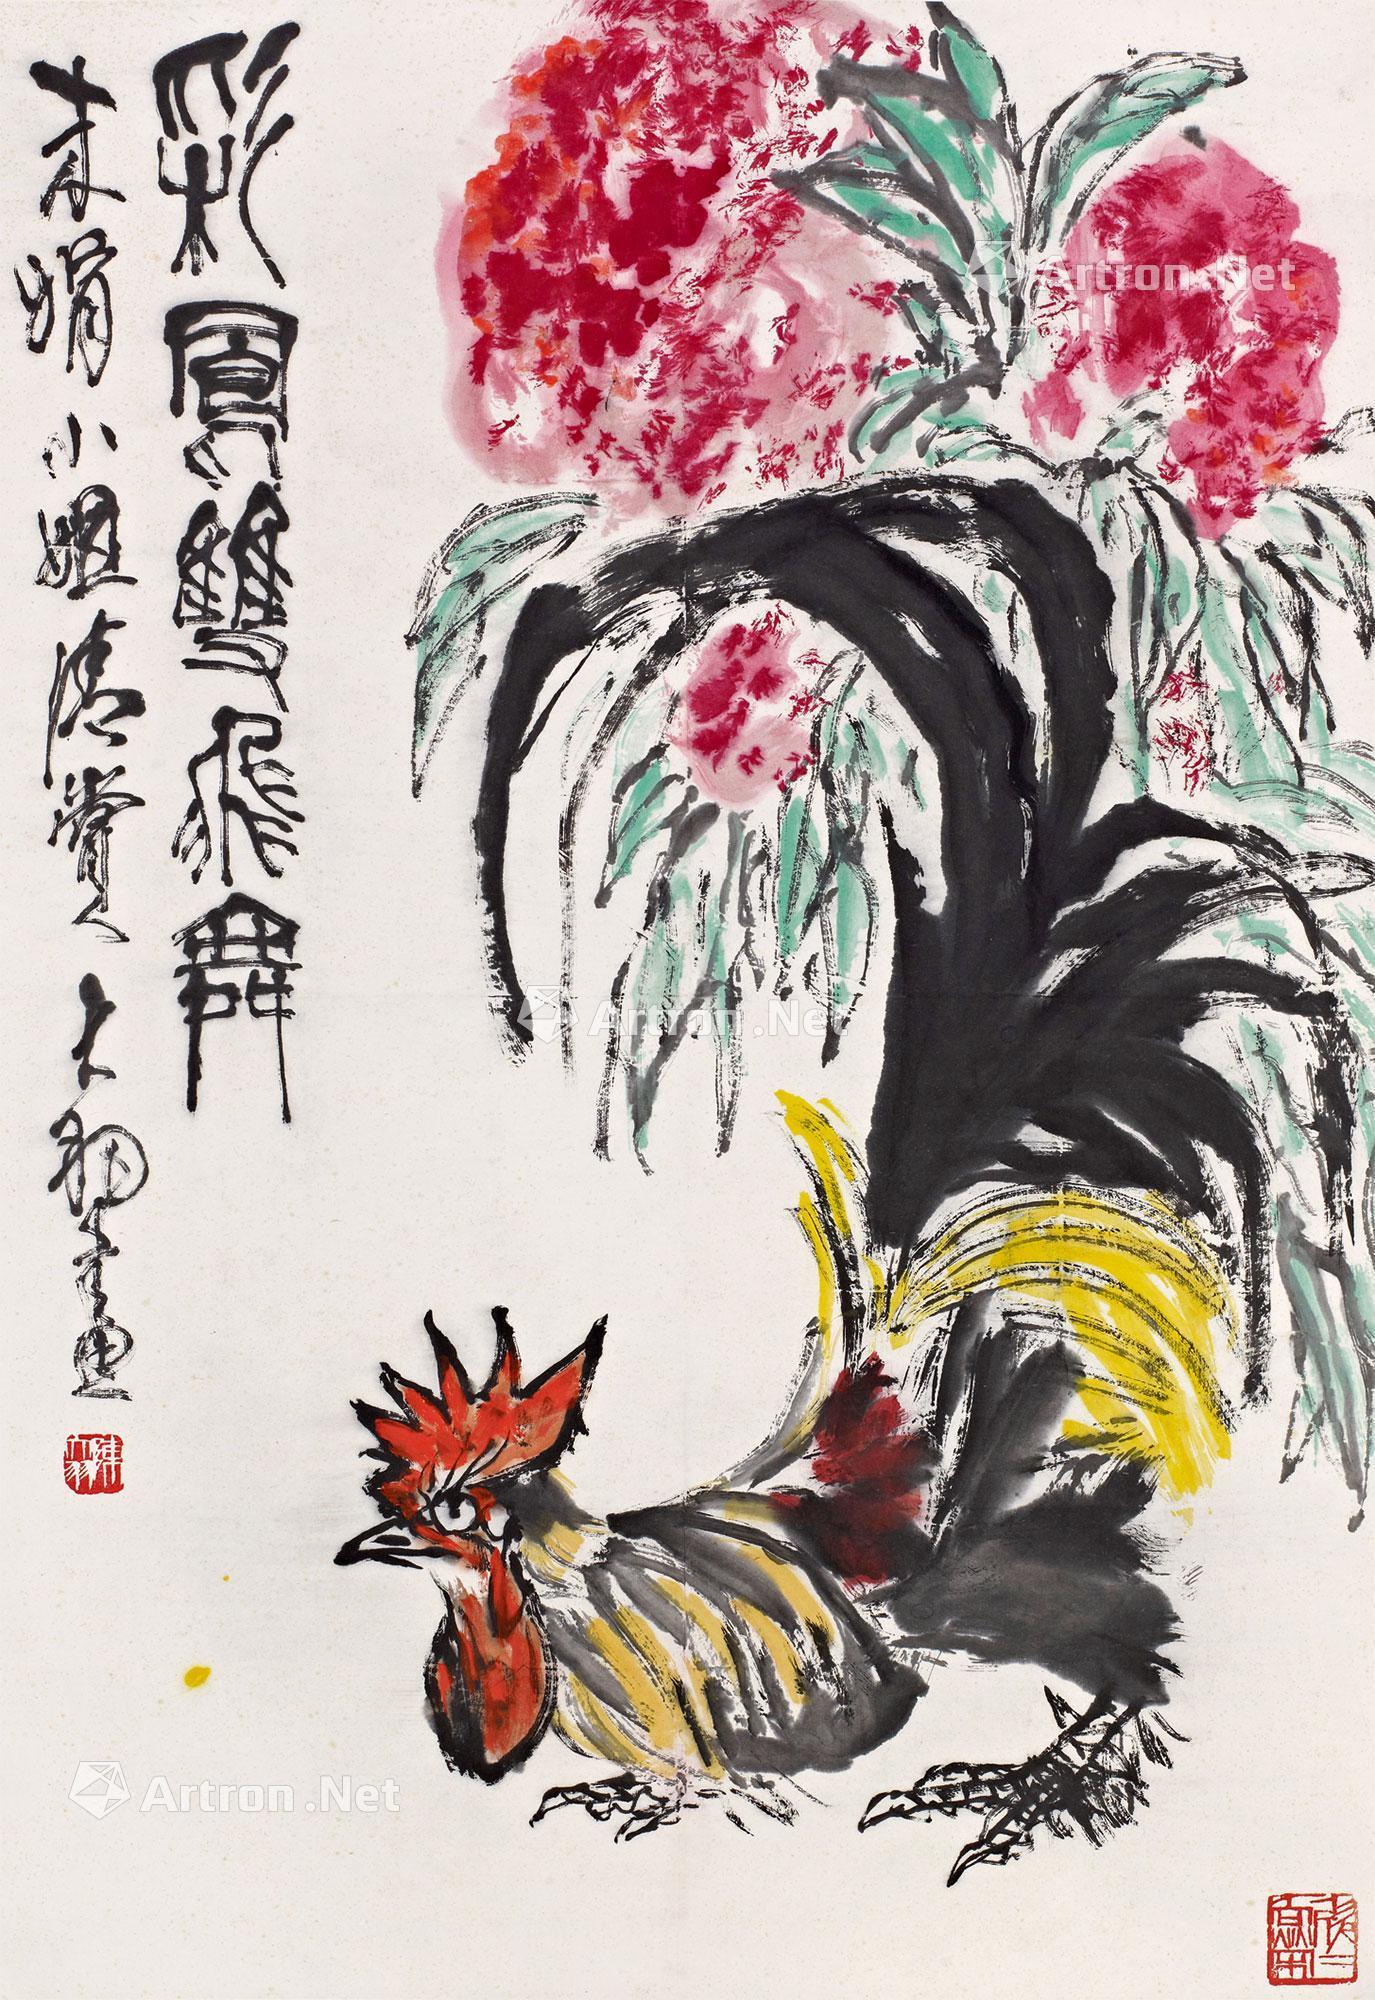 彩鳳雙飛舞
未娟小姐清賞 大羽畫
Artron.Net
Artron.Net
Artron.Net